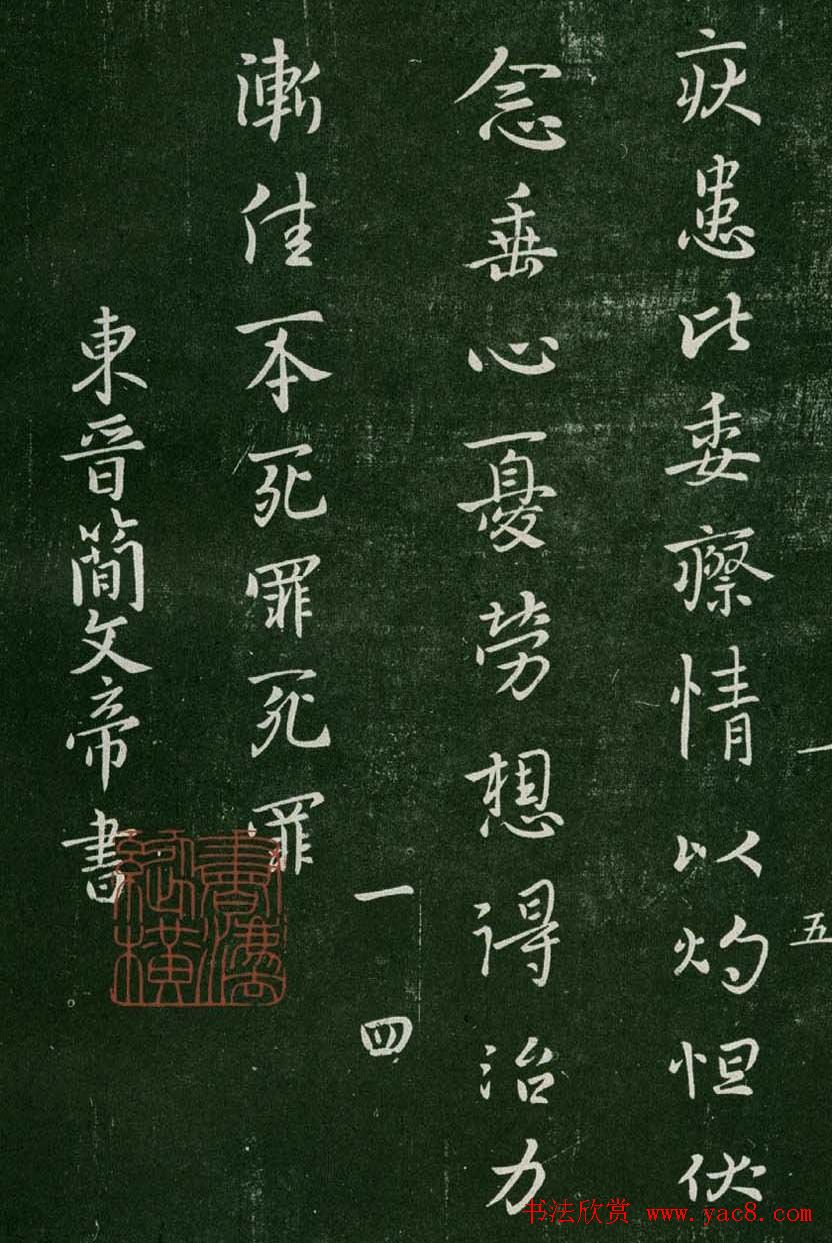 一五
疾患比委瘵情以灼怛伏
念垂心憂勞想得治力
一四
漸佳本死罪死罪
東晉簡文帝書
書灋縱橫
书法欣赏 www.yac8.com